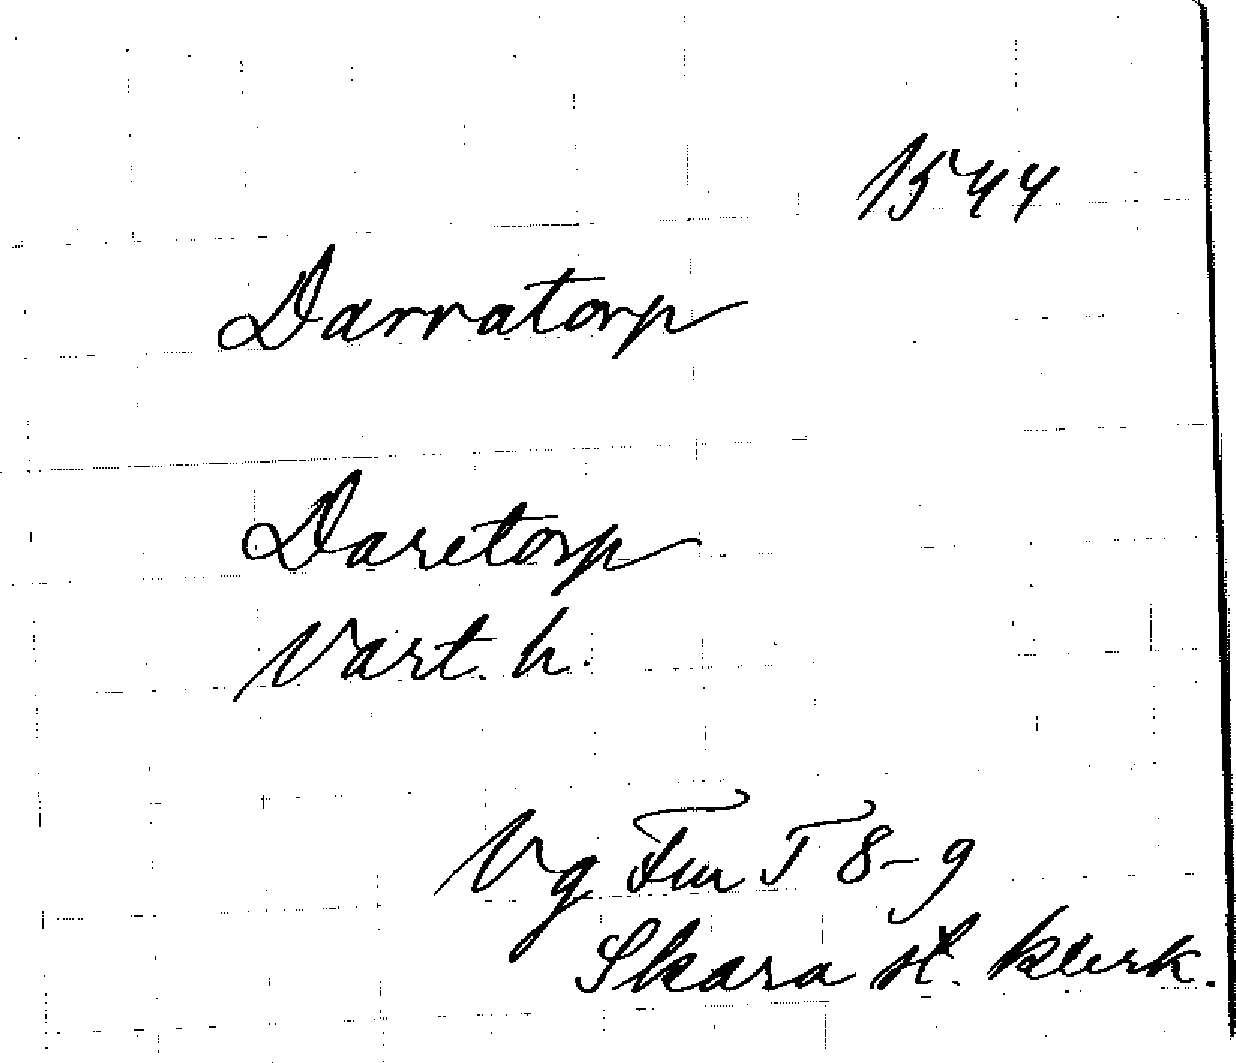 1544
Darratorp
Daretorp
Vart. h.
Vg Fur T 8-9
Skara st. klerk.